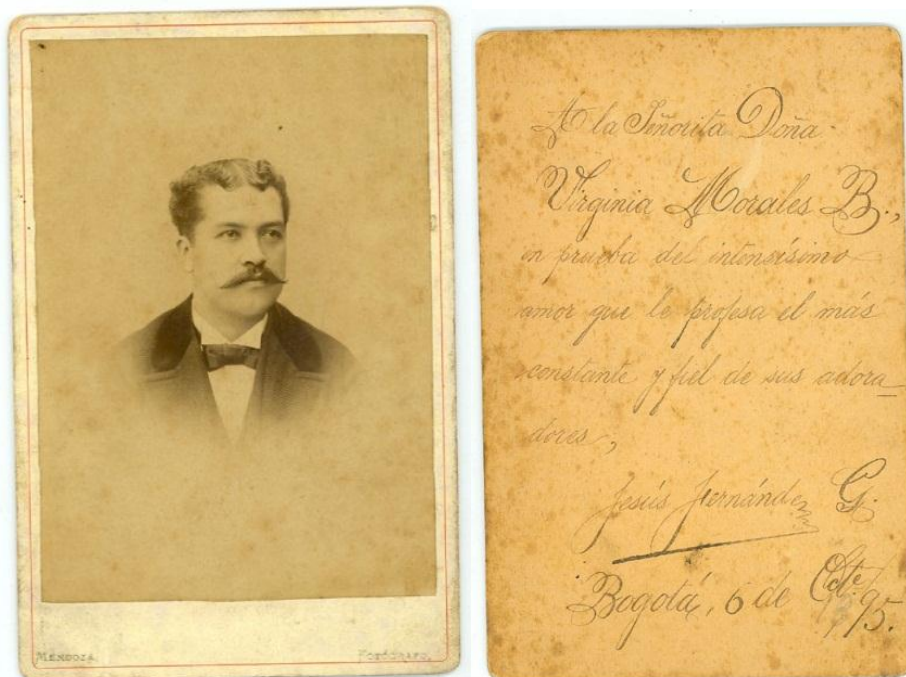 MENDOZA
FOTÓGRAFO.
A la Señorita Doña
Virginia Morales B.,
en prueba del intensísimo
amor que le profesa el más
constante y fiel de sus adora_
dores,
Jesús Fernández G.
Bogotá, 6 de Obte./95.